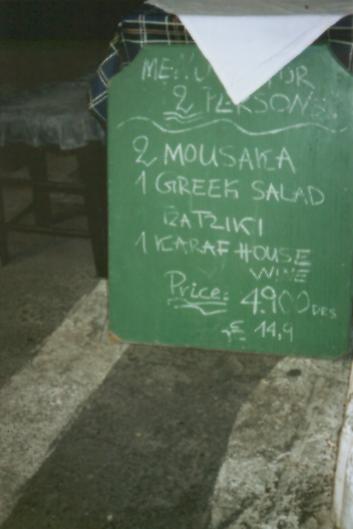 MENU FOR
2 PERSONS
2 MOUSAKA
1 GREEK SALAD
TZATZIKI
1 KARAF HOUSE
WINE
Price: 4.900 DRS
€ 14,9